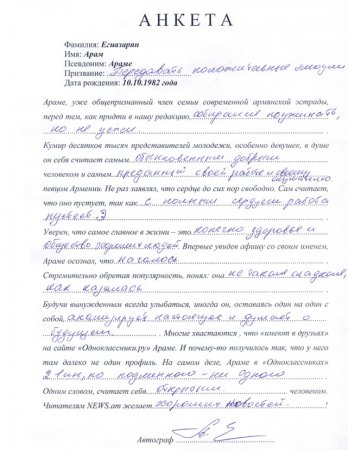 АНКЕТА
Фамилия: Егиазарян
Имя: Арам
Псевдоним: Араме
Призвание: Передавать положительные эмоции
Дата рождения: 10.10.1982 года
Араме, уже общепризнанный член семьи современной армянской эстрады,
перед тем, как придти в нашу редакцию, собирался поужинать,
но не успел
Кумир десятков тысяч представителей молодежи, особенно девушек, в душе
он себя считает самым обыкновенным добрым
человеком и самым преданный своей работе и
певцом Армении. Не раз заявлял, что сердце до сих пор свободно. Сам считает,
что оно пустует, так как с полным сердцем работа
пустеет :)
Уверен, что самое главное в жизни – это конечно здоровье и
общество хороших людей. Впервые увидев афишу со своим именем,
Араме осознал, что началось
Стремительно обретая популярность, понял: она не такая сладкая,
как казалась
Будучи вынужденным всегда улыбаться, иногда он, оставаясь один на один с
собой, анализирует настоящее и думает о
будущем. Многие хвастаются, что «имеют в друзьях»
на сайте «Одноклассники.ру» Араме. И почему-то получилось так, что у него
там далеко не один профиль. На самом деле, Араме в «Одноклассниках»
но подлинного – ни одного
Одним словом, считает себя открытым человеком.
Читателям NEWS.am желает хороших новостей !
Автограф